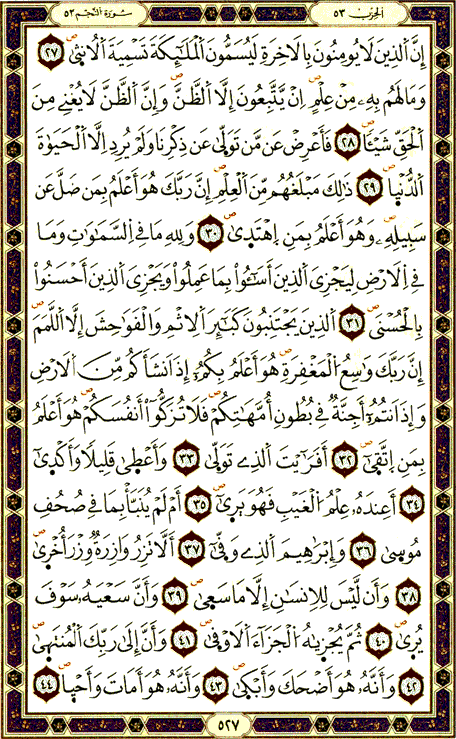 الحزب ٥٣
سورة النجم ٥٣
إِنَّ اَ۬لذِينَ لَا يُومِنُونَ بِالَاخِرَةِ لَيُسَمُّونَ اَ۬لْمَلَٰٓئِكَةَ تَسْمِيَةَ اَ۬لُانث۪يٰ ٢٧
وَمَا لَهُم بِهِۦ مِنْ عِلْمٍ اِنْ يَّتَّبِعُونَ إِلَّا اَ۬لظَّنَّ وَإِنَّ اَ۬لظَّنَّ لَا يُغْنِے مِنَ
اَ۬لْحَقِّ شَيْـٔاٗ ٢٨ فَأَعْرِضْ عَن مَّن تَوَلّ۪يٰ عَن ذِكْرِنَا وَلَمْ يُرِدِ اِلَّا اَ۬لْحَيَوٰةَ
اَ۬لدُّنْي۪ا ٢٩ ذَٰلِكَ مَبْلَغُهُم مِّنَ اَ۬لْعِلْمِ إِنَّ رَبَّكَ هُوَ أَعْلَمُ بِمَن ضَلَّ عَن
سَبِيلِهِۦ وَهُوَ أَعْلَمُ بِمَنِ اِ۪هْتَد۪يٰ ٣٠ وَلِلهِ مَا فِے اِ۬لسَّمَٰوَٰتِ وَمَا
فِے اِ۬لَارْضِ لِيَجْزِيَ اَ۬لذِينَ أَسَٰٓـُٔواْ بِمَا عَمِلُواْ وَيَجْزِيَ اَ۬لذِينَ أَحْسَنُواْ
بِالْحُسْنَي ٣١ اَ۬لذِينَ يَجْتَنِبُونَ كَبَٰٓئِرَ اَ۬لِاثْمِ وَالْفَوَٰحِشَ إِلَّا اَ۬للَّمَمَ
إِنَّ رَبَّكَ وَٰسِعُ اُ۬لْمَغْفِرَةِ هُوَ أَعْلَمُ بِكُمُۥٓ إِذَ اَنشَأَكُم مِّنَ اَ۬لَارْضِ
وَإِذَ اَنتُمُۥٓ أَجِنَّةٞ فِے بُطُونِ أُمَّهَٰتِكُمْ فَلَا تُزَكُّوٓاْ أَنفُسَكُمْ هُوَ أَعْلَمُ
بِمَنِ اِ۪تَّق۪يٰٓ ٣٢ أَفَرَٰٓيْتَ اَ۬لذِے تَوَلّ۪يٰ ٣٣ وَأَعْط۪يٰ قَلِيلاٗ وَأَكْد۪يٰٓ
٣٤ أَعِندَهُۥ عِلْمُ اُ۬لْغَيْبِ فَهُوَ يَر۪يٰٓ ٣٥ أَمْ لَمْ يُنَبَّأْ بِمَا فِے صُحُفِ
مُوس۪يٰ ٣٦ وَإِبْرَٰهِيمَ اَ۬لذِے وَفّ۪يٰٓ ٣٧ أَلَّا تَزِرُ وَازِرَةٞ وِزْرَ أُخْر۪يٰ
٣٨ وَأَن لَّيْسَ لِلِانسَٰنِ إِلَّا مَا سَع۪يٰ ٣٩ وَأَنَّ سَعْيَهُۥ سَوْفَ
يُر۪يٰ ٤٠ ثُمَّ يُجْز۪يٰهُ اُ۬لْجَزَآءَ اَ۬لَاوْف۪يٰ ٤١ وَأَنَّ إِلَيٰ رَبِّكَ اَ۬لْمُنتَه۪يٰ
٤٢ وَأَنَّهُۥ هُوَ أَضْحَكَ وَأَبْك۪يٰ ٤٣ وَأَنَّهُۥ هُوَ أَمَاتَ وَأَحْي۪ا ٤٤
٥٢٧